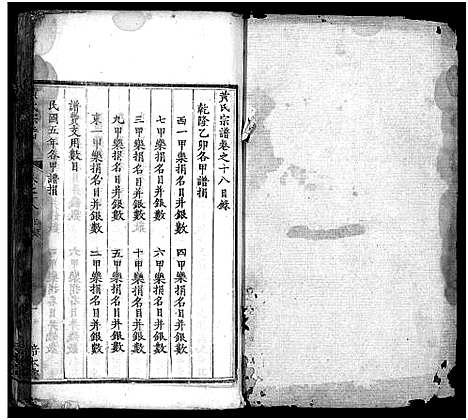 黄氏宗譜卷之十八目錄
乾隆乙卯各甲譜捐
西一甲樂捐名目并銀數
四甲樂捐名目并銀數
七甲樂捐名目并銀數
六甲樂捐名目并銀數
三甲樂捐名目并銀數
十甲樂捐名目并銀數
九甲樂捐名目并銀數
五甲樂捐名目并銀數
東一甲樂捐名目并銀數
二甲樂捐名目并銀數
譜費支用數目
民國五年各甲譜捐